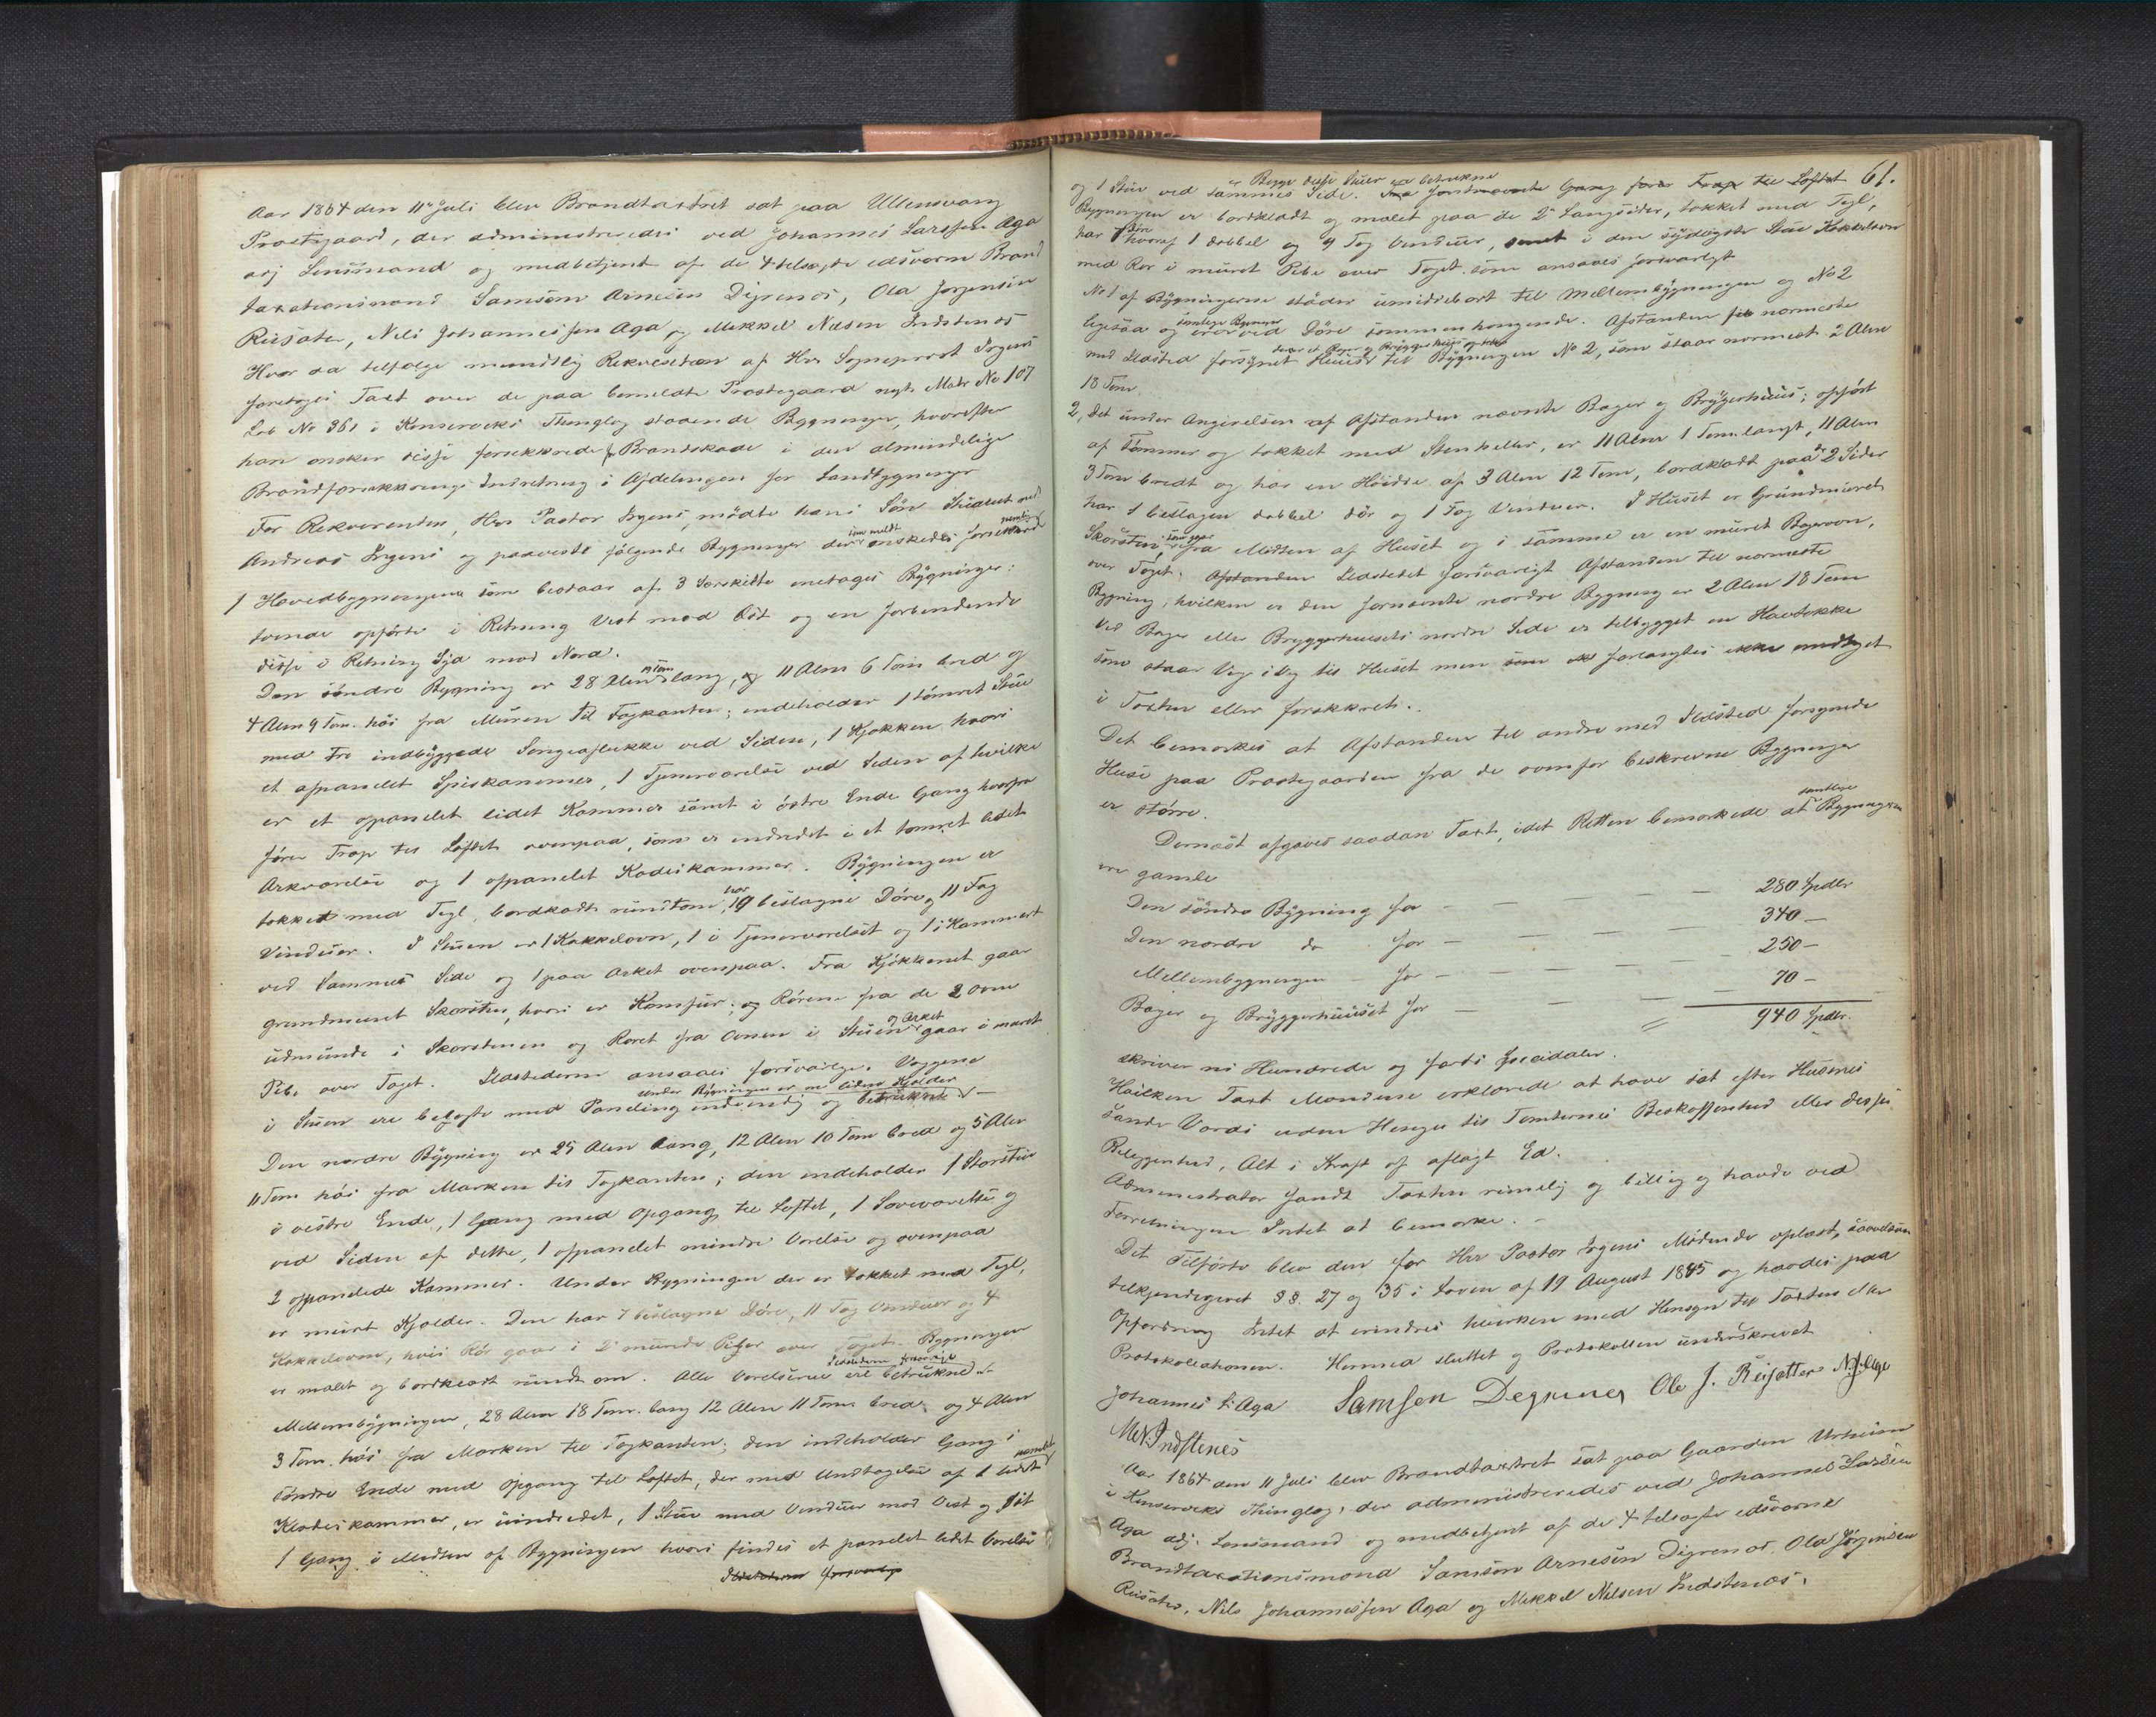 Aar 1864 den 11te Juli blev Brandtaxtret sat paa Ullensvang
Prostgaard, der administreredes ved Johannes Larssen Aga
adj Lensmand og medbetjent af de 4 tilsagte edsvorne Brand
taxationsmænd Samson Arnesen Digrenæs, Ola Jørgensen
Reisæter, Nils Johannessen Aga og Mikkel Nilsen Indstenæs
Hvor da tilfølge mundtlig Rekvisition af Hr Sogneprest Irgens
foretoges Taxt over de paa bemeldte Prostegaard nyt Matr No 107
Løb No 361 i Kinserviks Thinglag staaende Bygninger, hvorefter
han ønsker disse forsikkrede f Brandskade i den almindelige
Brandforsikkrings Indretning i Afdelingen for Landbygninger
For Rekvirenten, Hr Pastor Irgens, mødte hans Søn Student
Andreas Irgens og paaviste følgende Bygninger der ønskedes forsikkred
1 Hovedbygningen som bestaar af 3 særskilte enetages Bygninger:
tvende opførte i Retning Vest mod Øst og en forbindende
disse i Retning Syd mod Nord.
Den søndre Bygning er 28 Alen lang, og 11 Alen 6 Tom bred og
4 Alen 9 Tom. høi fra Muren til Tagkanten; indeholder 1 tømret Stue
med to indbyggede Sengeaflukke ved Siden, 1 Kjøkken hvori
et afpanelet Spiskammer, 1 Tjenerværelse ved Siden af hvilke
er et opanelet lidet Kammer samt i østre Ende Gang hvorfra
fører Trap til Loftet ovenpaa, som er indredet i et tømret lidet
Arkværelse og 1 afpanelet Klædeskammer. Bygningen er
tækket med Tegl, bordklædt rundtom, har 19 beslagne Døre og 11 Fag
Vinduer. I Stuen er 1 Kakkelovn, 1 i Tjenerværelset og 1 i Kammert
ved Sammes Side og 1 paa Arket ovenpaa. Fra Kjøkkenet gaar
grundmuret Skorsten, hvori er Komfur; og Rørene fra de 2 Ovne
udmunde i Skorstenen og Røret fra Ovnen i Stuen og Arket gaar i muret
Pibe over Taget. Ildstederne ansaaes forsvarlige. Væggene
under Bygningen er en liden Kjelder
i Stuen ere beklædte med Paneling indvendig og betrukne
Den nordre Bygning er 25 Alen lang, 12 Alen 10 Tom bred og 5 Alen
11 Tom høi fra Marken til Tagkanten; den indeholder 1 Storstue
i vestre Ende, 1 Gang med Opgang til Loftet, 1 Soveværelse og
ved Siden af dette, 1 afpanelet mindre Værelse og ovenpaa
2 afpanelede Kammer. Under Bygningen der er tækket med Tegl,
er muret Kjelder. Den har 7 beslagne Døre, 11 Fag Vinduer og 4
Kakkelovne, hvis Rør gaar i 2de murede Piber over Taget. Bygningen
er malet og bordklædt rundt om. Alle Værelserne ere betrukne
Mellembygningen, 28 Alen 18 Tom. lang 12 Alen 11 Tom bred og 4 Alen
3 Tom. høi fra Marken til Tagkanten; den indeholder Gang i
søndre Ende med Opgang til Loftet, der med Undtagelse af 1 lidet
Klædeskammer, er uindredet, 1 Stue med Vinduer mod Vest og Øst
1 Gang i Midten af Bygningen hvori findes et panelet lidet Værelse
Ildstederne forsvarlige
61.
Begge disse Stuer er betrukne
og 1 Stue ved sammes Side. Fra førstnævnte Gang fører Trap til Loftet
Bygningen er bordklædt og malet paa de 2de Langsider, tækket med Tegl,
har 7 Døre hvoraf 1 dobbel og 9 Fag Vinduer, samt i den sydligste Stue Kakkelovn
med Rør i muret Pibe over Taget som ansaaes forsvarligt
No 1 af Bygningerne støder umiddelbart til Mellembygningen og No 2
ligesaa og ere ved Døre sammenhængende. Afstanden fra nærmeste
med Ildsted forsynet Huus til Bygningen No 2, som staar nærmest 2 Alen
18 Tom.
2, Det under Angivelsen af Afstanden nævnte Bager og Bryggerhuus; opført
af Tømmer og tækket med Stenheller, er 11 Alen 1 Tom langt, 11 Alen
3 Tom bredt og har en Høide af 3 Alen 12 Tom, bordklædt paa de 2 Sider
har 1 beslagen dobbel Dør og 1 Fag Vinduer. I Huset er Grundmuret
Skorsten, fra Midten af Huset og i samme er en muret Bagerovn,
over Taget; Afstanden Ildstedet forsvarligt Afstanden til nærmeste
Bygning, hvilken er den fornævnte nordre Bygning er 2 Alen 18 Tom
Ved Bager eller Bryggerhuusets nordre Side er tilbygget en
som staar Væg i Væg til Huset men forlangtes ikke medtaget
i Taxten eller forsikkret.
Det bemærkes at Afstanden til andre med Ildsted forsynede
Huse paa Prostegaarden fra de ovenfor beskrevne Bygninger
er større.
Dernæst afgaves saadan Taxt, idet Retten bemærkede at samtlige Bygninger
ere gamle
Den søndre Bygning for — — — — 280 Spdlr
Den nordre do for — — — — 340 —
Mellembygningen for — — — — 250 —
Bager og Bryggerhuuset for — — — — 70 —
= 940 Spdlr.
skriver ni Hundrede og førti Speciedaler.
Hvilken Taxt Mændene erklærede at have sat efter Husenes
sande Værdi uden Hensyn til Tomternes Beskaffenhed eller disses
Beliggenhed, Alt i Kraft af aflagt Ed.
Administrator fandt Taxten rimelig og billig og havde ved
Forretningen Intet at bemærke. —
Det Tilførte blev den for Hr Pastor Irgens Mødende oplæst, saavelsom
tilkjendegivet §§. 27 og 35 i Loven af 19 August 1845 og havdes paa
Opfordring Intet at erindres hverken med Hensyn til Taxten eller
Protokollationen. Hermed sluttet og Protokollen underskrevet
Johannes L. Aga Samsen Degrenes Ole J. Reisætter N. J. Aga
M. N. Indstenes
Aar 1864 den 11 Juli blev Brandtaxtret sat paa Gaarden Urheim
i Kinserviks Thinglag, der administreredes ved Johannes Larsen
Aga adj. Lensmand og medbetjent af de 4 tilsagte edsvorne
Brandtaxationsmænd Samson Arnesen Digrenæs, Ola Jørgensen
Reisæter, Nils Johannessen Aga og Mikkel Nilsen Indstenæs.